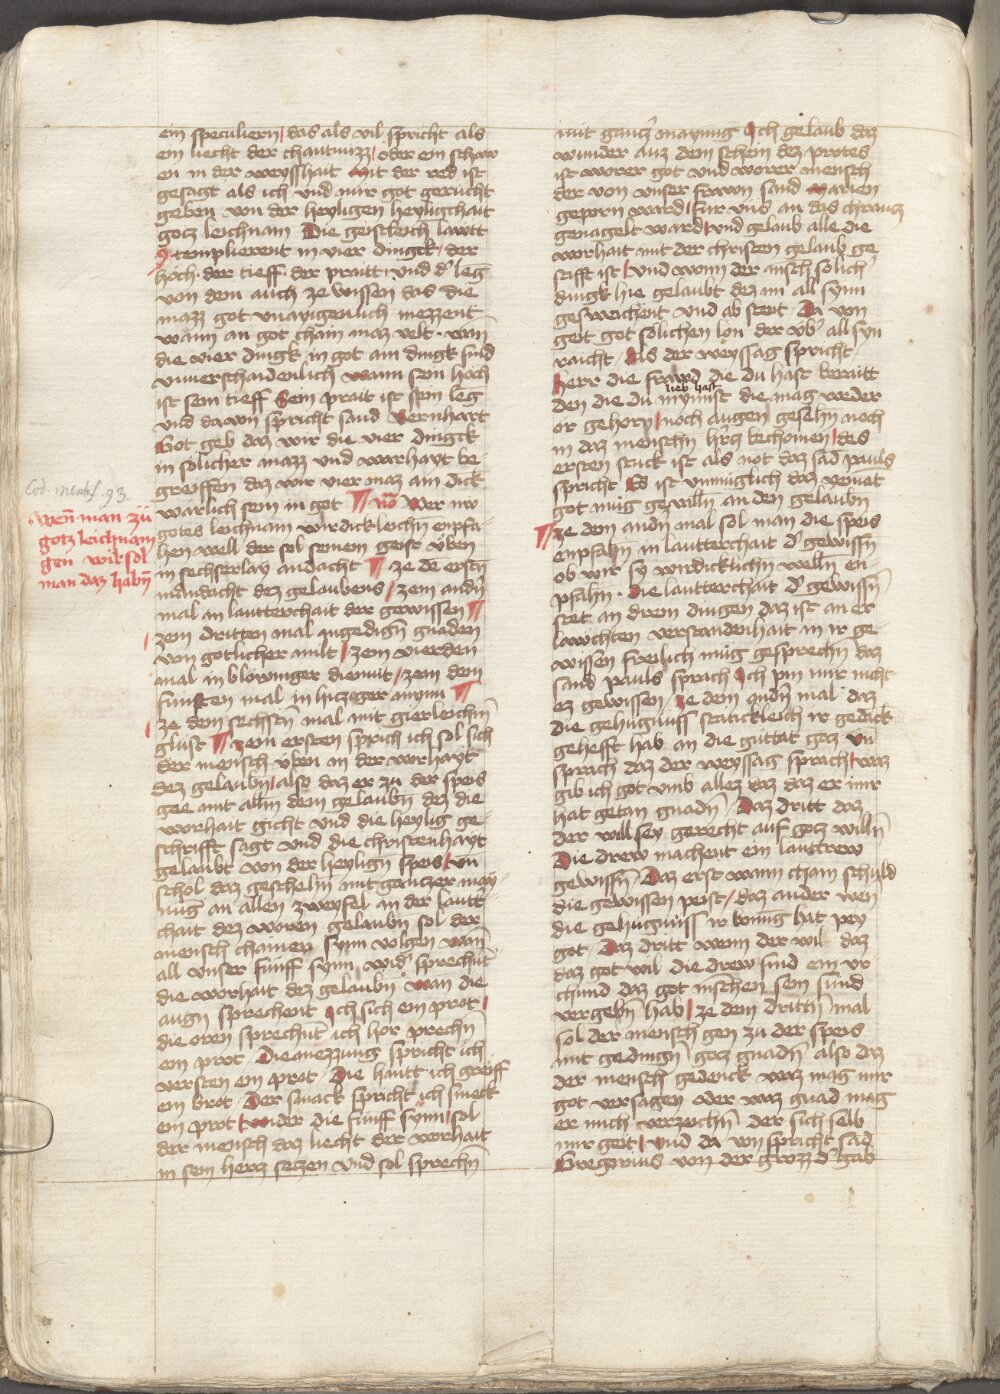 ein speculiern das als vil spricht als
ein liecht der chantnuzz oder ein schaw
en in der weysshait Mit der red ist
gesagt als ich vnd mir got gerücht
geben von der heyligen heyligchait
gotz leichnam Die geistleich lawtt
templierent in vier dingck der
höch der tieff der praitt vnd d' leg̅
von dem auch ze wissen das die
mazz got vnaygenlich mezzent
wann an got chain maz velt wan
die vier dingk in got ain dingk sind
vnuerschaidenlich wann sein höch
ist sein tieff Sein prait ist sein leg̅
vnd dauon spricht sand Bernhart
Got geb daz wir die vier dingck
in solicher mazz vnd warhayt be
greiffen daz wir vier maz am dick
warlich sein in got ¶ No Wer nw
gotes leichnam wirdickleich̅n enpfa
hen well der sol seinem geist vben
in sechserlay andacht ¶ Ze de ersten
mandacht dez gelaubens zem andn̅
mal in lautterchait der gewissen ¶
zem dritten mal ingedign̅ gnaden
von gotlicher milt zem vierden
mal in blowniger diemut zem dem
funften mal in hicziger mynn ¶
ze dem sechsten̅ mal mit gierleichn̅
glust ¶ Zem ersten sprich ich sol sich
der mensch vben in der worhayt
dez gelaubn̅ also daz er zu der speis
gee mit allm̅ dem gelaubn̅ dez die
worhait gicht vnd die heylig ge
schrifft sagt vnd die christenhayt
gelaubt von der heylign̅ speis vn̅
schol daz geschehn̅ mit gantzer may
nu̅g an allen zweyfel an der lautt
chait dez woren gelaubn̅ sol der
mensch chainen synn volgen wan̅
all vnser funff synn wid' sprechn̅t
die worhait dez gelaubn̅ wan die
augn̅ sprechent Ich sich ein prot
die oren sprechn̅t ich hor prechn̅
ein prot Die niezzung spricht ich
versten ein prot Die hautt ich greiff
ein brot Der smack spricht ich smeck
ein prot wider die funff synn sol
der mensch daz liecht der worhait
in sein hercz seczen vnd sol sprechn̅
Cod. membr. 93.
Wen̅ man zü
gotz leichnam
gen wil sol
man daz habn̅
mit gancz' maynung Ich gelaub daz
wunder auz dem schein dez protes
ist worer got vnd worer mensch
der von vnser frawn sand Marien
geporn ward fur vns an das chrawcz
genagelt ward vnd gelaub alle die
worhait mit der christen gelaub ge
stifft ist vnd wenn der mesch̅ solich
dingk hie gelaubt dez im all synn
gesweichent vnd ab stent Da von
geit got solichen lon der vb' all syn
raicht Als der weyssag spricht
Herr die frawd die du hast beraitt
lieb hast
den die du mynnst die mag weder
or gehorn noch augen gesehn noch
in daz menschn̅ hercz bechomen des
ersten stuck ist als not daz sad̅ pauls
spricht Es ist vnmuglich daz yemat̅
got müg gevalln̅ an den gelaubn̅
¶ Ze dem andn̅ mal sol man die speis
enpfahn̅ in lautterchait d' gewissn̅
ob wir sy wirdicklichn̅ welln̅ en
pfahn̅ Die lautterchait d' gewissn̅
stet an drein dingen daz ist an er
lawchten verstandenhait in ir ge
wissen freilich müg gesprechn̅ daz
sand pauls sprach Ich pin mir nicht
ez gewissen ze dem andn̅ mal daz
die gehugnuss statickleich ir gedäck
gehefft hab an die guttat gocz vn̅
sprach daz der weyssag sprach waz
gib ich got vmb allez daz daz er mir
hat getan gnadn̅ Daz dritt daz
der will sey gerecht auf gotz willn̅
Die drew machent ein lauttrew
gewissn̅ Daz erst wann chain schuld
die gewissen peist daz ander wen̅
die gehugnuss ir vonung hat pey
got Daz dritt wenn der wil daz
daz got wil die drew sind ein vr
chund daz got meschen̅ sein sund
vergebn̅ hab Ze dem drittn̅ mal
sol der mensch gen zu der speis
mit gedingn̅ gotz gnadn̅ also daz
der mensch gedenck waz mag mir
got versagen oder waz gnad mag
er mich verzeichn̅ der sich selb
mir geit vnd da von spricht sad̅
Gregorius von der grozz d' gab